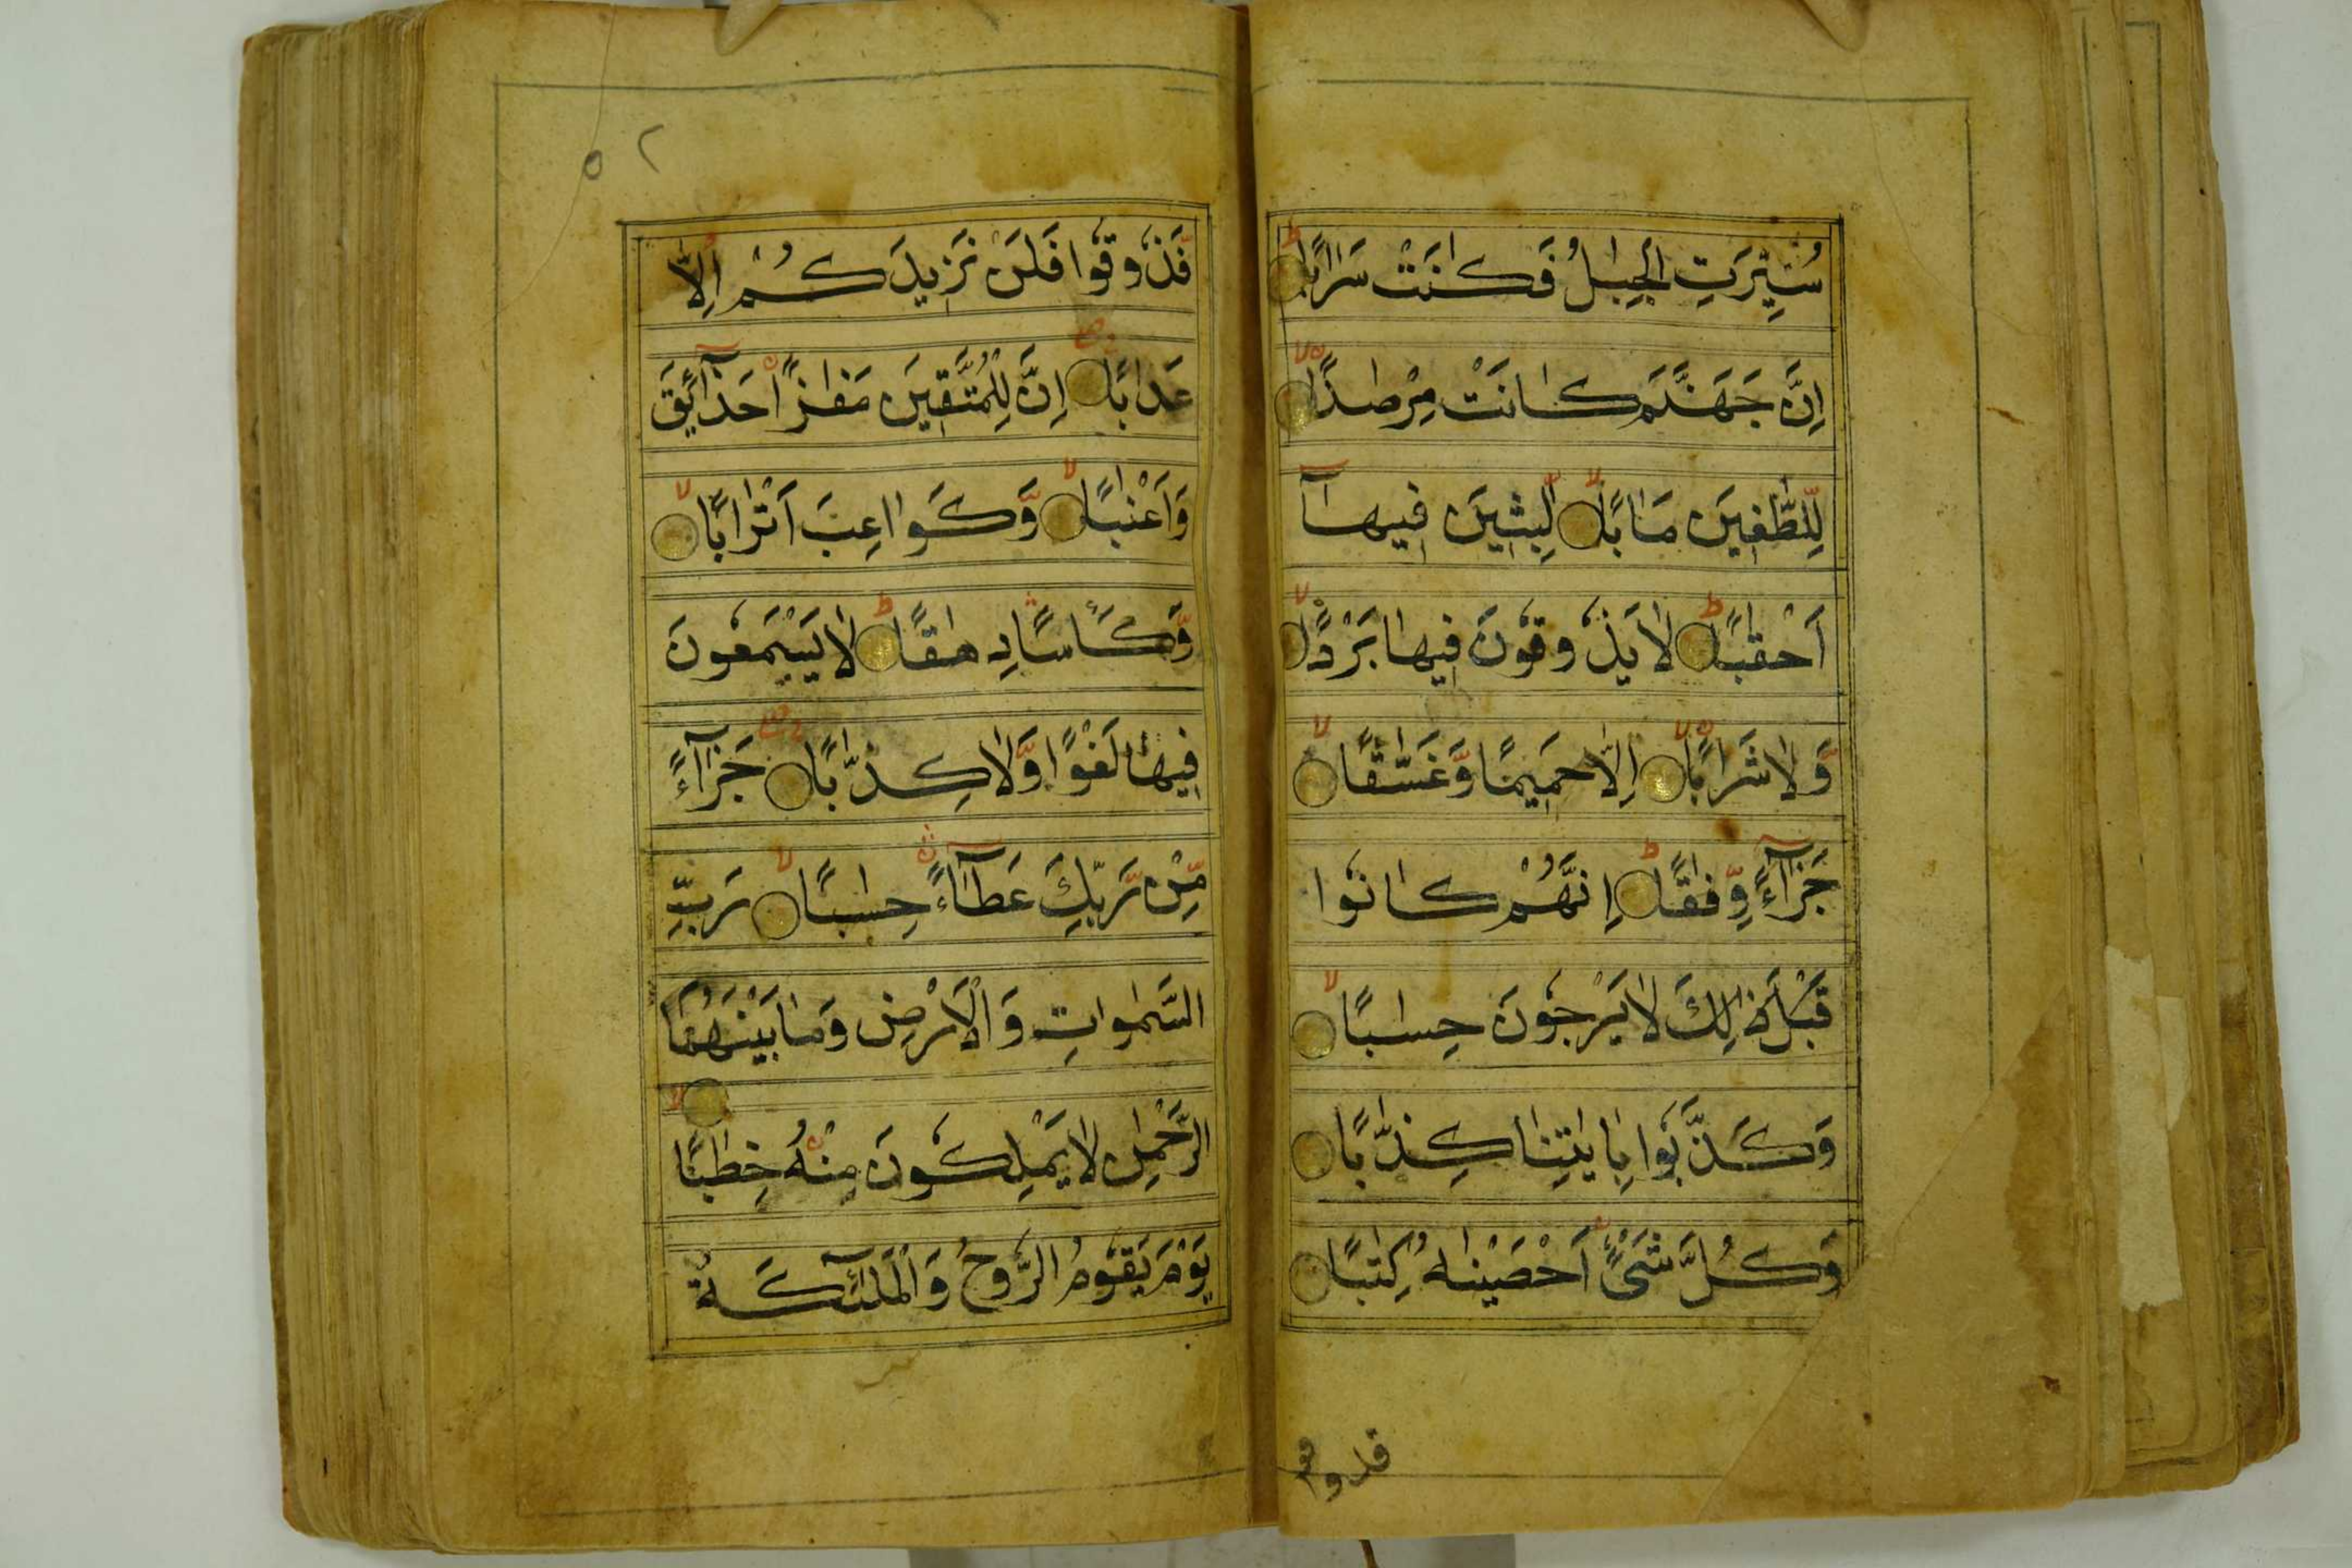 سُيِّرَتِ الْجِبَالُ فَكَانَتْ سَرَابًا
اِنَّ جَهَنَّمَ كَانَتْ مِرْصَادًا
لِّلطّٰغِيْنَ مَاٰبًا لّٰبِثِيْنَ فِيْهَآ
اَحْقَابًا لَا يَذُوْقُوْنَ فِيْهَا بَرْدًا
وَّلَا شَرَابًا اِلَّا حَمِيْمًا وَّغَسَّاقًا
جَزَآءً وِّفَاقًا اِنَّهُمْ كَانُوْا
قَبْلَ ذٰلِكَ لَا يَرْجُوْنَ حِسَابًا
وَكَذَّبُوْا بِاٰيٰتِنَا كِذَّابًا
وَكُلَّ شَيْءٍ اَحْصَيْنٰهُ كِتٰبًا
٥٢
فَذُوْقُوْا فَلَنْ نَزِيْدَكُمْ اِلَّا
عَذَابًا اِنَّ لِلْمُتَّقِيْنَ مَفَازًا حَدَآئِقَ
وَاَعْنَابًا وَّكَوَاعِبَ اَتْرَابًا
وَّكَاْسًا دِهَاقًا لَا يَسْمَعُوْنَ
فِيْهَا لَغْوًا وَّلَا كِذّٰبًا جَزَآءً
مِّنْ رَّبِّكَ عَطَآءً حِسَابًا رَبِّ
السَّمٰوٰتِ وَالْاَرْضِ وَمَا بَيْنَهُمَا
الرَّحْمٰنِ لَا يَمْلِكُوْنَ مِنْهُ خِطَابًا
يَوْمَ يَقُوْمُ الرُّوْحُ وَالْمَلٰٓئِكَةُ